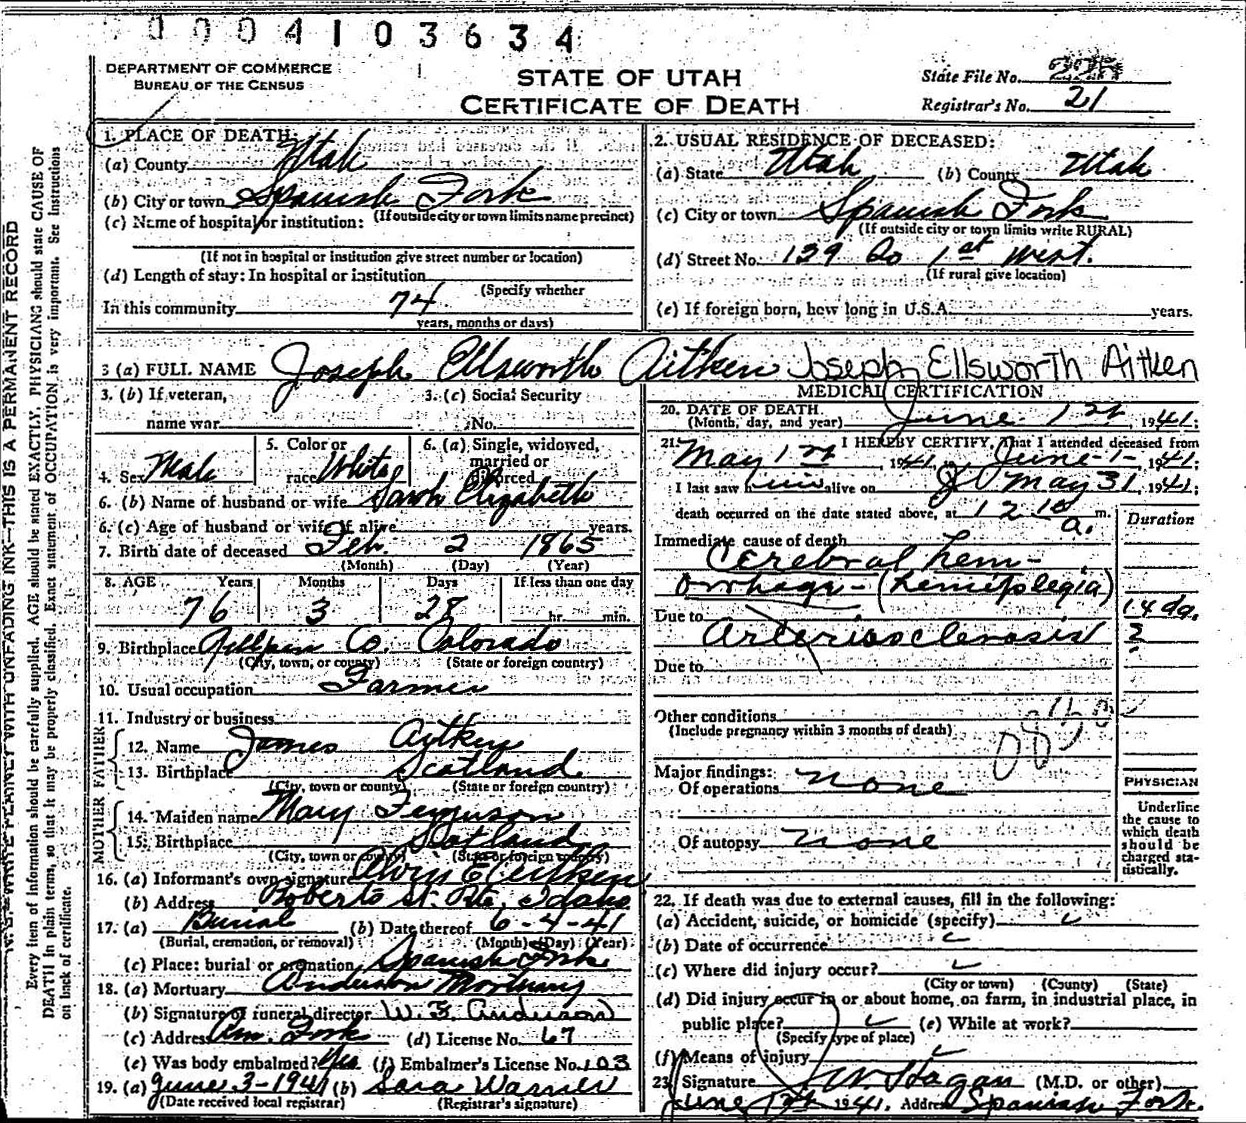 0004103634
DEPARTMENT OF COMMERCE
BUREAU OF THE CENSUS
STATE OF UTAH
CERTIFICATE OF DEATH
State File No.
Registrar's No. 21
W.S.E. WRITE PLAINLY WITH UNFADING INK—THIS IS A PERMANENT RECORD
Every item of information should be carefully supplied. AGE should be stated EXACTLY. PHYSICIANS should state CAUSE OF
DEATH in plain terms, so that it may be properly classified. Exact statement of OCCUPATION is very important. See Instructions
on back of certificate.
1. PLACE OF DEATH:
(a) County Utah
(b) City or town Spanish Fork
(If outside city or town limits name precinct)
(c) Name of hospital or institution:
(If not in hospital or institution give street number or location)
(d) Length of stay: In hospital or institution
(Specify whether
In this community 74
years, months or days)
2. USUAL RESIDENCE OF DECEASED:
(a) State Utah (b) County Utah
(c) City or town Spanish Fork
(If outside city or town limits write RURAL)
(d) Street No. 139 So 1st West.
(If rural give location)
(e) If foreign born, how long in U.S.A. years.
3 (a) FULL NAME Joseph Ellsworth Aitken Joseph Ellsworth Aitken
3. (b) If veteran,
name war
3. (c) Social Security
No.
4. Sex Male
5. Color or
race White
6. (a) Single, widowed,
married or
divorced
6. (b) Name of husband or wife Sarah Elizabeth
6. (c) Age of husband or wife if alive years.
7. Birth date of deceased Feb. 2 1865
(Month) (Day) (Year)
8. AGE Years Months Days If less than one day
76 3 28 hr. min.
9. Birthplace Gillpin Co. Colorado
(City, town, or county) (State or foreign country)
10. Usual occupation Farmer
11. Industry or business
FATHER
12. Name James Aitken
13. Birthplace Scotland
(City, town or county) (State or foreign country)
MOTHER
14. Maiden name Mary Ferguson
15. Birthplace Scotland
(City, town or county) (State or foreign country)
16. (a) Informant's own signature Alvin E Aitken
(b) Address Roberts St. Rte, Idaho
17. (a) Burial (b) Date thereof 6-4-41
(Burial, cremation, or removal) (Month) (Day) (Year)
(c) Place: burial or cremation Spanish Fork
18. (a) Mortuary Anderson Mortuary
(b) Signature of funeral director W. F. Anderson
(c) Address Am. Fork (d) License No. 67
(e) Was body embalmed? Yes (f) Embalmer's License No. 103
19. (a) June 3-1941 (b) Sara Warner
(Date received local registrar) (Registrar's signature)
MEDICAL CERTIFICATION
20. DATE OF DEATH
(Month, day, and year) June 1st, 1941;
21. I HEREBY CERTIFY, That I attended deceased from
May 1st, 1941, June-1-, 1941;
I last saw him alive on May 31, 1941;
death occurred on the date stated above, at 12 10 a. m.
Duration
Immediate cause of death
Cerebral hem-
orrhage-(hemiplegia)
14 da.
Due to Arteriosclerosis ?
Due to
Other conditions
(Include pregnancy within 3 months of death)
Major findings:
Of operations none
Of autopsy none
PHYSICIAN
Underline
the cause to
which death
should be
charged sta-
tistically.
22. If death was due to external causes, fill in the following:
(a) Accident, suicide, or homicide (specify)
(b) Date of occurrence
(c) Where did injury occur?
(City or town) (County) (State)
(d) Did injury occur in or about home, on farm, in industrial place, in
public place? (e) While at work?
(Specify type of place)
(f) Means of injury
23. Signature W. Hagan (M.D. or other)
June 1st 1941. Address Spanish Fork.